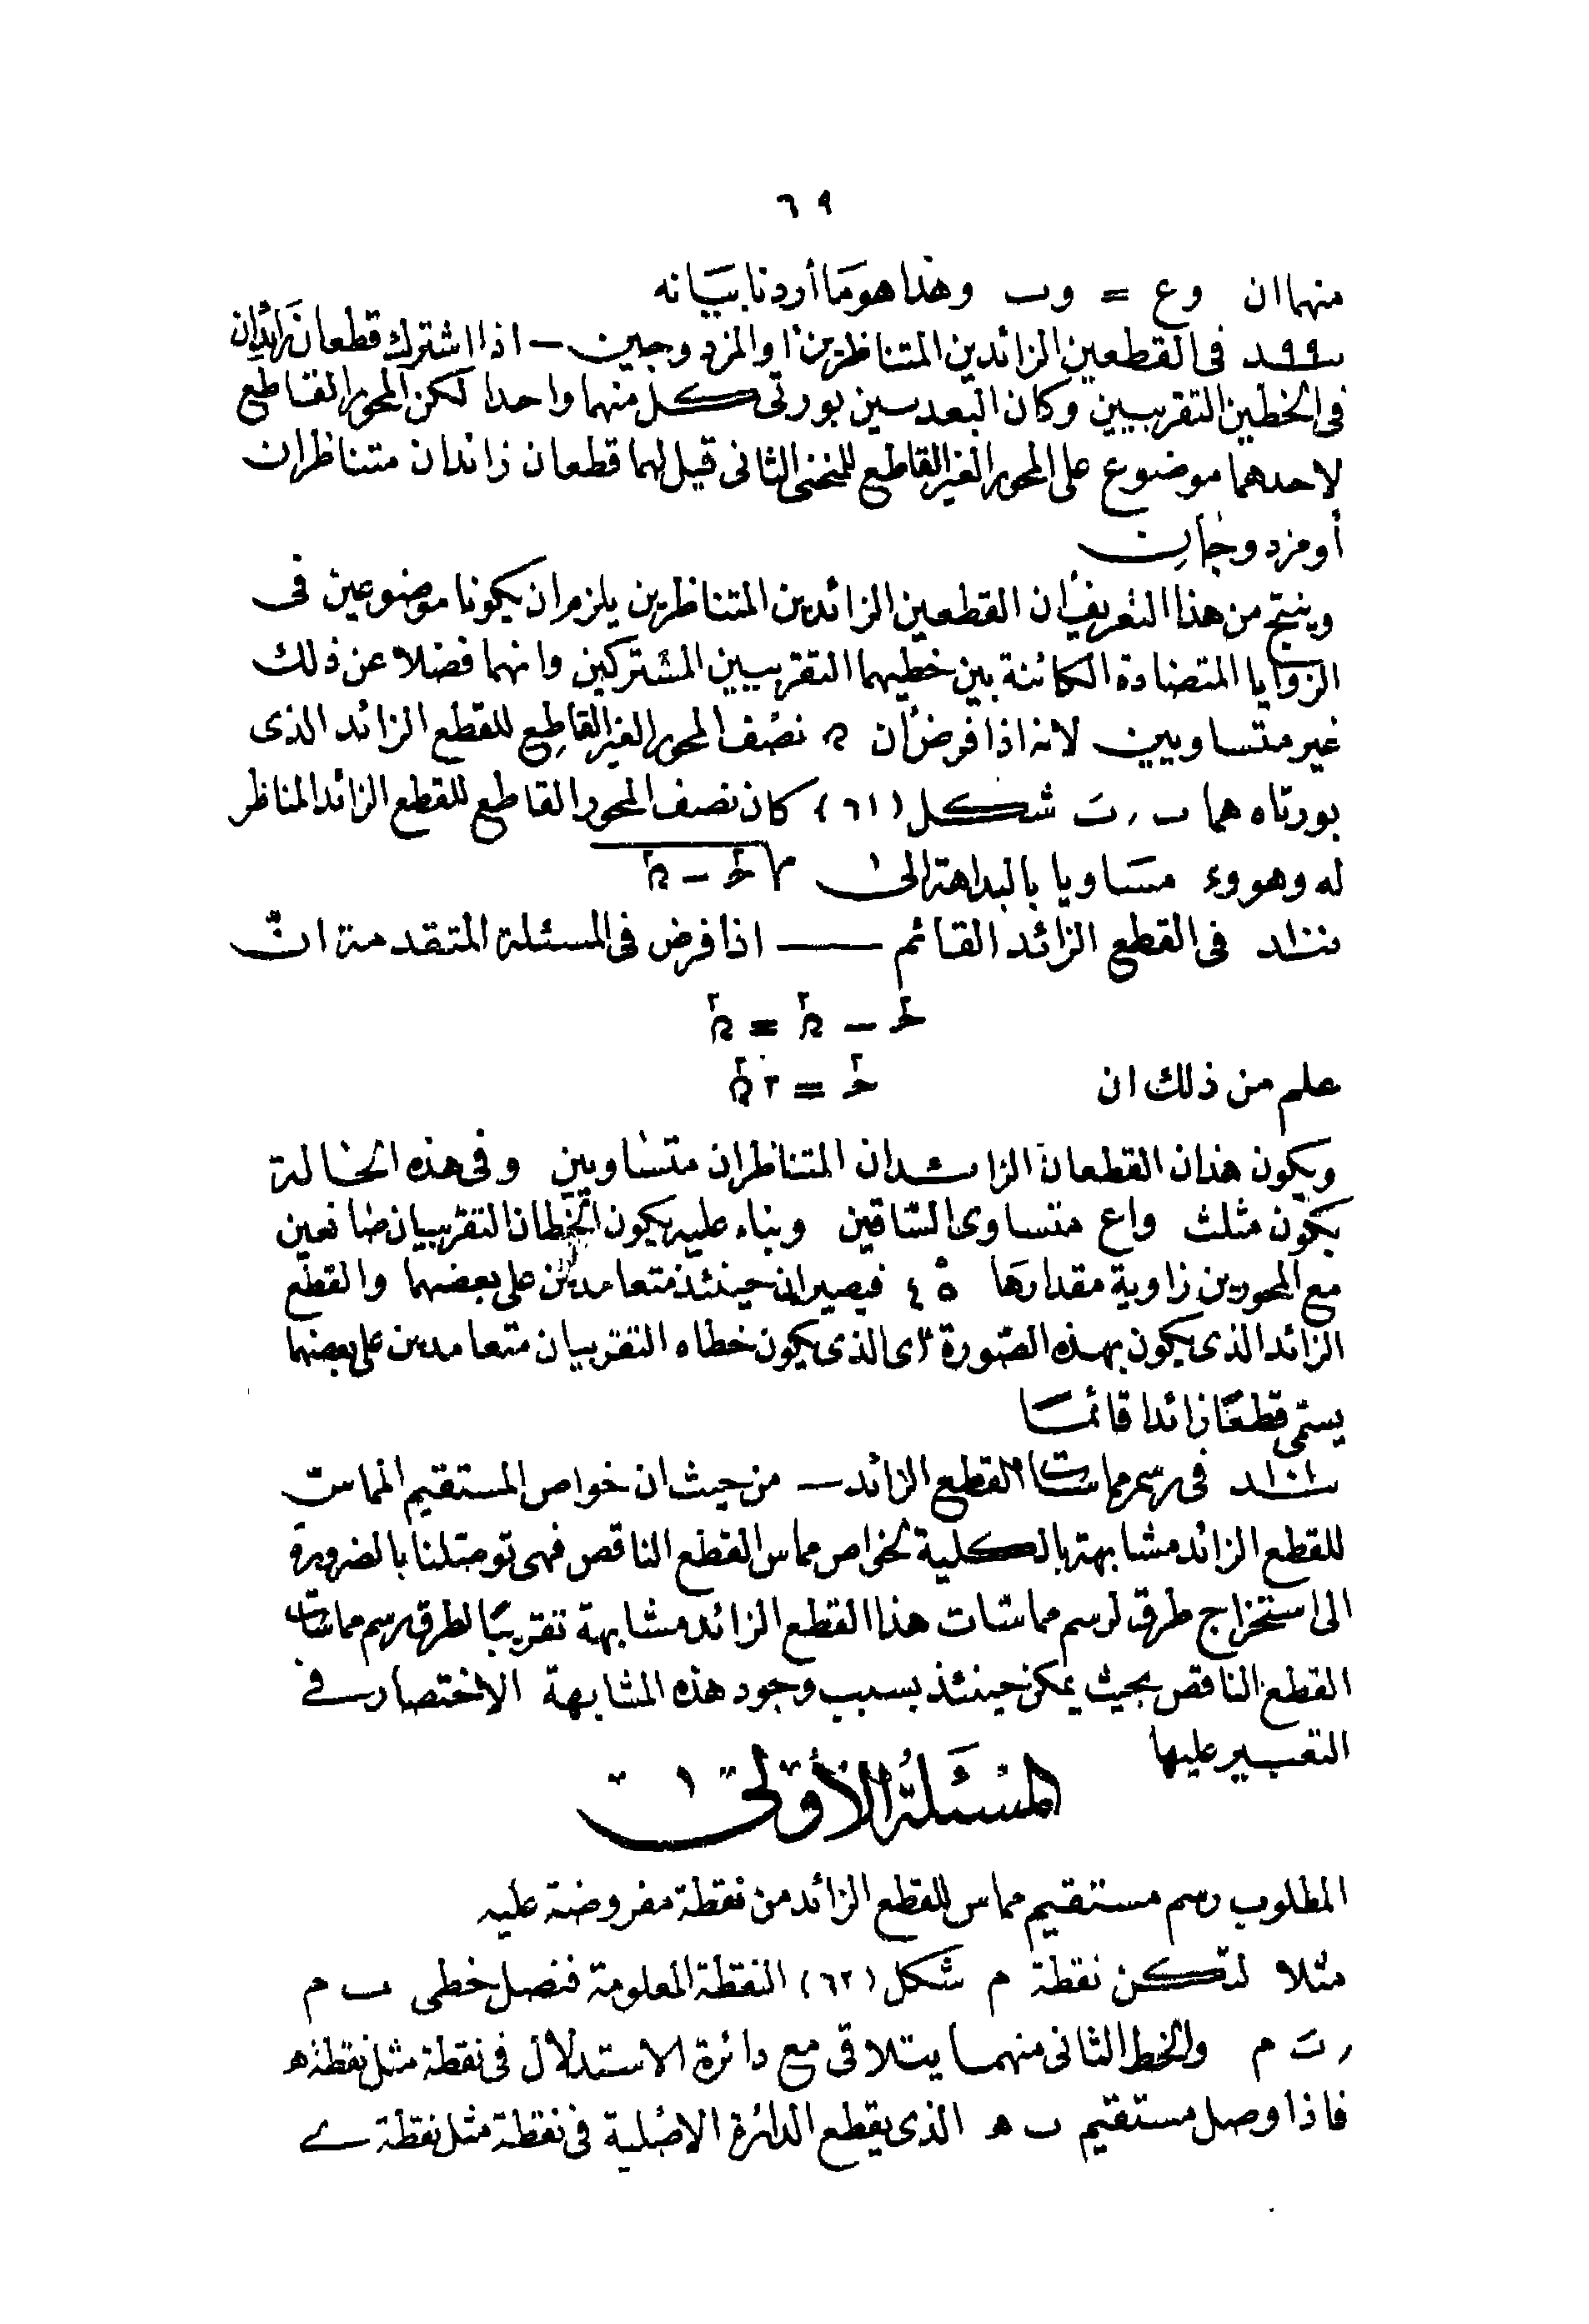 ٦٩
منهما ان وع = وب وهذا هو ما أردنا بيانه
٩٩ـد فى القطعين الزائدين المتناظرين أو المزدوجين ـ اذا اشترك قطعان زائدان
فى الخطين التقريبيين وكان البعد بين بورتى كل منهما واحدا لكن المحور القاطع
لاحدهما موضوع على المحور الغير القاطع للمنحنى الثانى قيل لهما قطعان زائدان متناظران
أو مزدوجان
وينتج من هذا التعريف أن القطعين الزائدين المتناظرين يلزم ان يكونا موضوعين فى
الزوايا المتضادة الكائنة بين خطيهما التقريبيين المشتركين وانهما فضلا عن ذلك
غير متساويين لانه اذا فرض أن ﻥ نصف المحور الغير القاطع للقطع الزائد الذى
بورتاه هما ب ر بَ شكل (٦١) كان نصف المحور القاطع للقطع الزائد المناظر
له وهو وء مساويا بالبداهة الى √حـ٢ − ﻥ٢
١٠٠ـد فى القطع الزائد القائم ـ اذا فرض فى المسئلة المتقدمة انّ
حـ٢ − ﻥ٢ = ﻥ٢
علم من ذلك ان حـ٢ = ٢ﻥ٢
ويكون هذان القطعان الزائدان المتناظران متساويين وفى هذه الحالة
يكون مثلث واع متساوى الساقين وبناء عليه يكون الخطان التقريبيان صانعين
مع المحورين زاوية مقدارها ٤٥ فيصيران حينئذ متعامدين على بعضهما والقطع
الزائد الذى يكون بهذه الصورة أى الذى يكون خطاه التقريبيان متعامدين على بعضهما
يسمى قطعا زائدا قائما
١٠١ـد فى رسم مماسات القطع الزائد ـ من حيث ان خواص المستقيم المماس
للقطع الزائد مشابهة بالكلية لخواص مماس القطع الناقص فهى توصلنا بالضرورة
الى استخراج طرق لرسم مماسّات هذا القطع الزائد مشابهة تقريبًا لطرق رسم مماسات
القطع الناقص بحيث يمكن حينئذ بسبب وجود هذه المشابهة الاختصار فى
التعبير عليها
المسئلة الأولى
المطلوب رسم مستقيم مماس للقطع الزائد من نقطة مفروضة عليه
مثلا لتكن نقطة م شكل (٦٢) النقطة المعلومة فنصل خطى ب م
ر بَ م والخط الثانى منهما يتلاقى مع دائرة الاستدلال فى نقطة مثل نقطة ه
فاذا وصل مستقيم ب ه الذى يقطع الدائرة الاصلية فى نقطة مثل نقطة ے